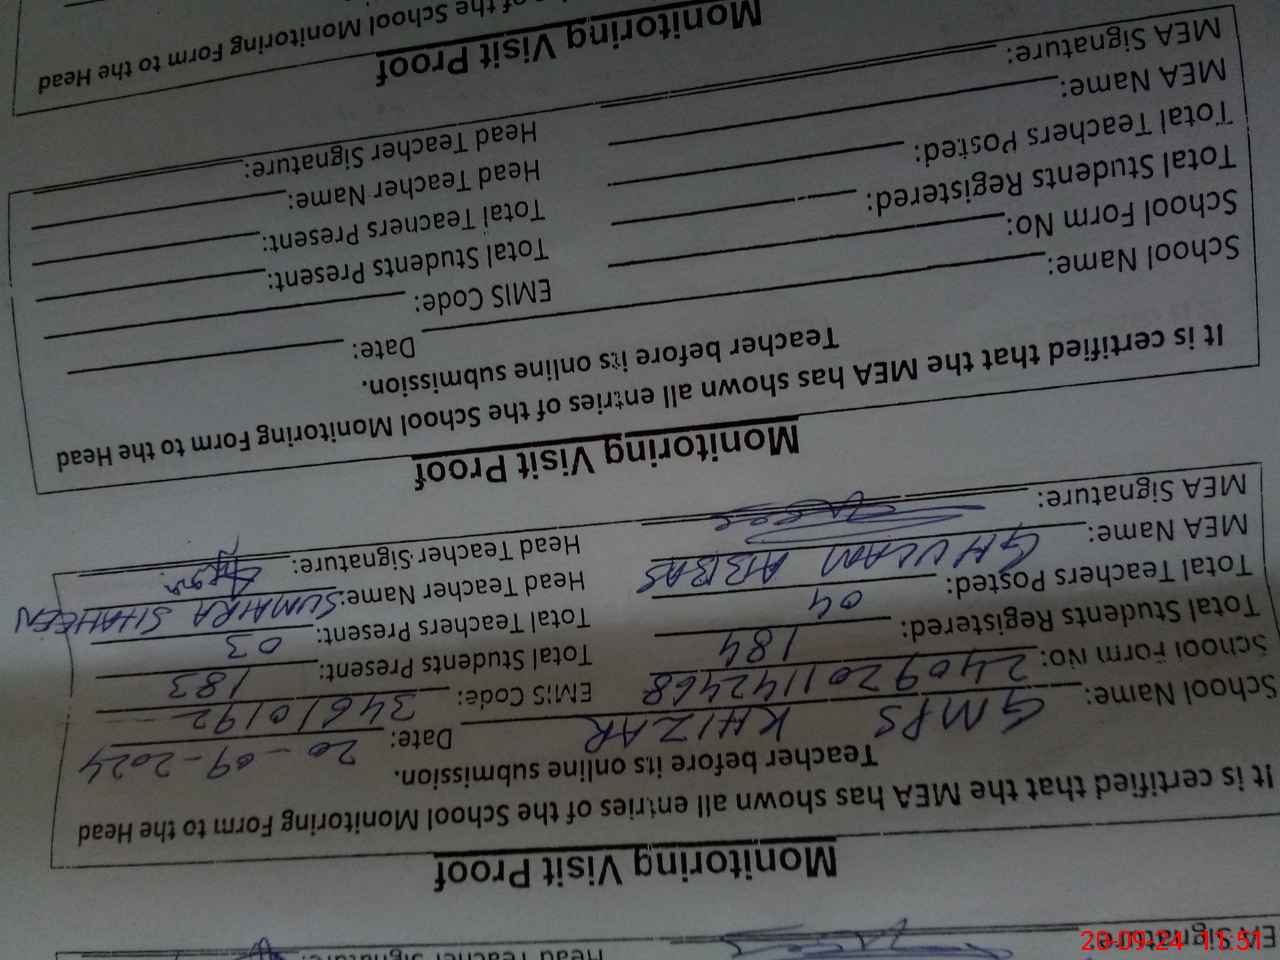 EA Signature: Head Teacher Signature:
Monitoring Visit Proof
It is certified that the MEA has shown all entries of the School Monitoring Form to the Head
Teacher before its online submission.
School Name: GMPS KHIZAR Date: 20-09-2024
School Form No: 2409201142468 EMIS Code: 34610192
Total Students Registered: 184 Total Students Present: 183
Total Teachers Posted: 04 Total Teachers Present: 03
MEA Name: GHULAM ABBAS Head Teacher Name: SUMAIRA SHAHEEN
MEA Signature: Head Teacher Signature:
Monitoring Visit Proof
It is certified that the MEA has shown all entries of the School Monitoring Form to the Head
Teacher before its online submission.
School Name: Date:
School Form No: EMIS Code:
Total Students Registered: Total Students Present:
Total Teachers Posted: Total Teachers Present:
MEA Name: Head Teacher Name:
MEA Signature: Head Teacher Signature:
Monitoring Visit Proof
of the School Monitoring Form to the Head
20-09-24 11:51